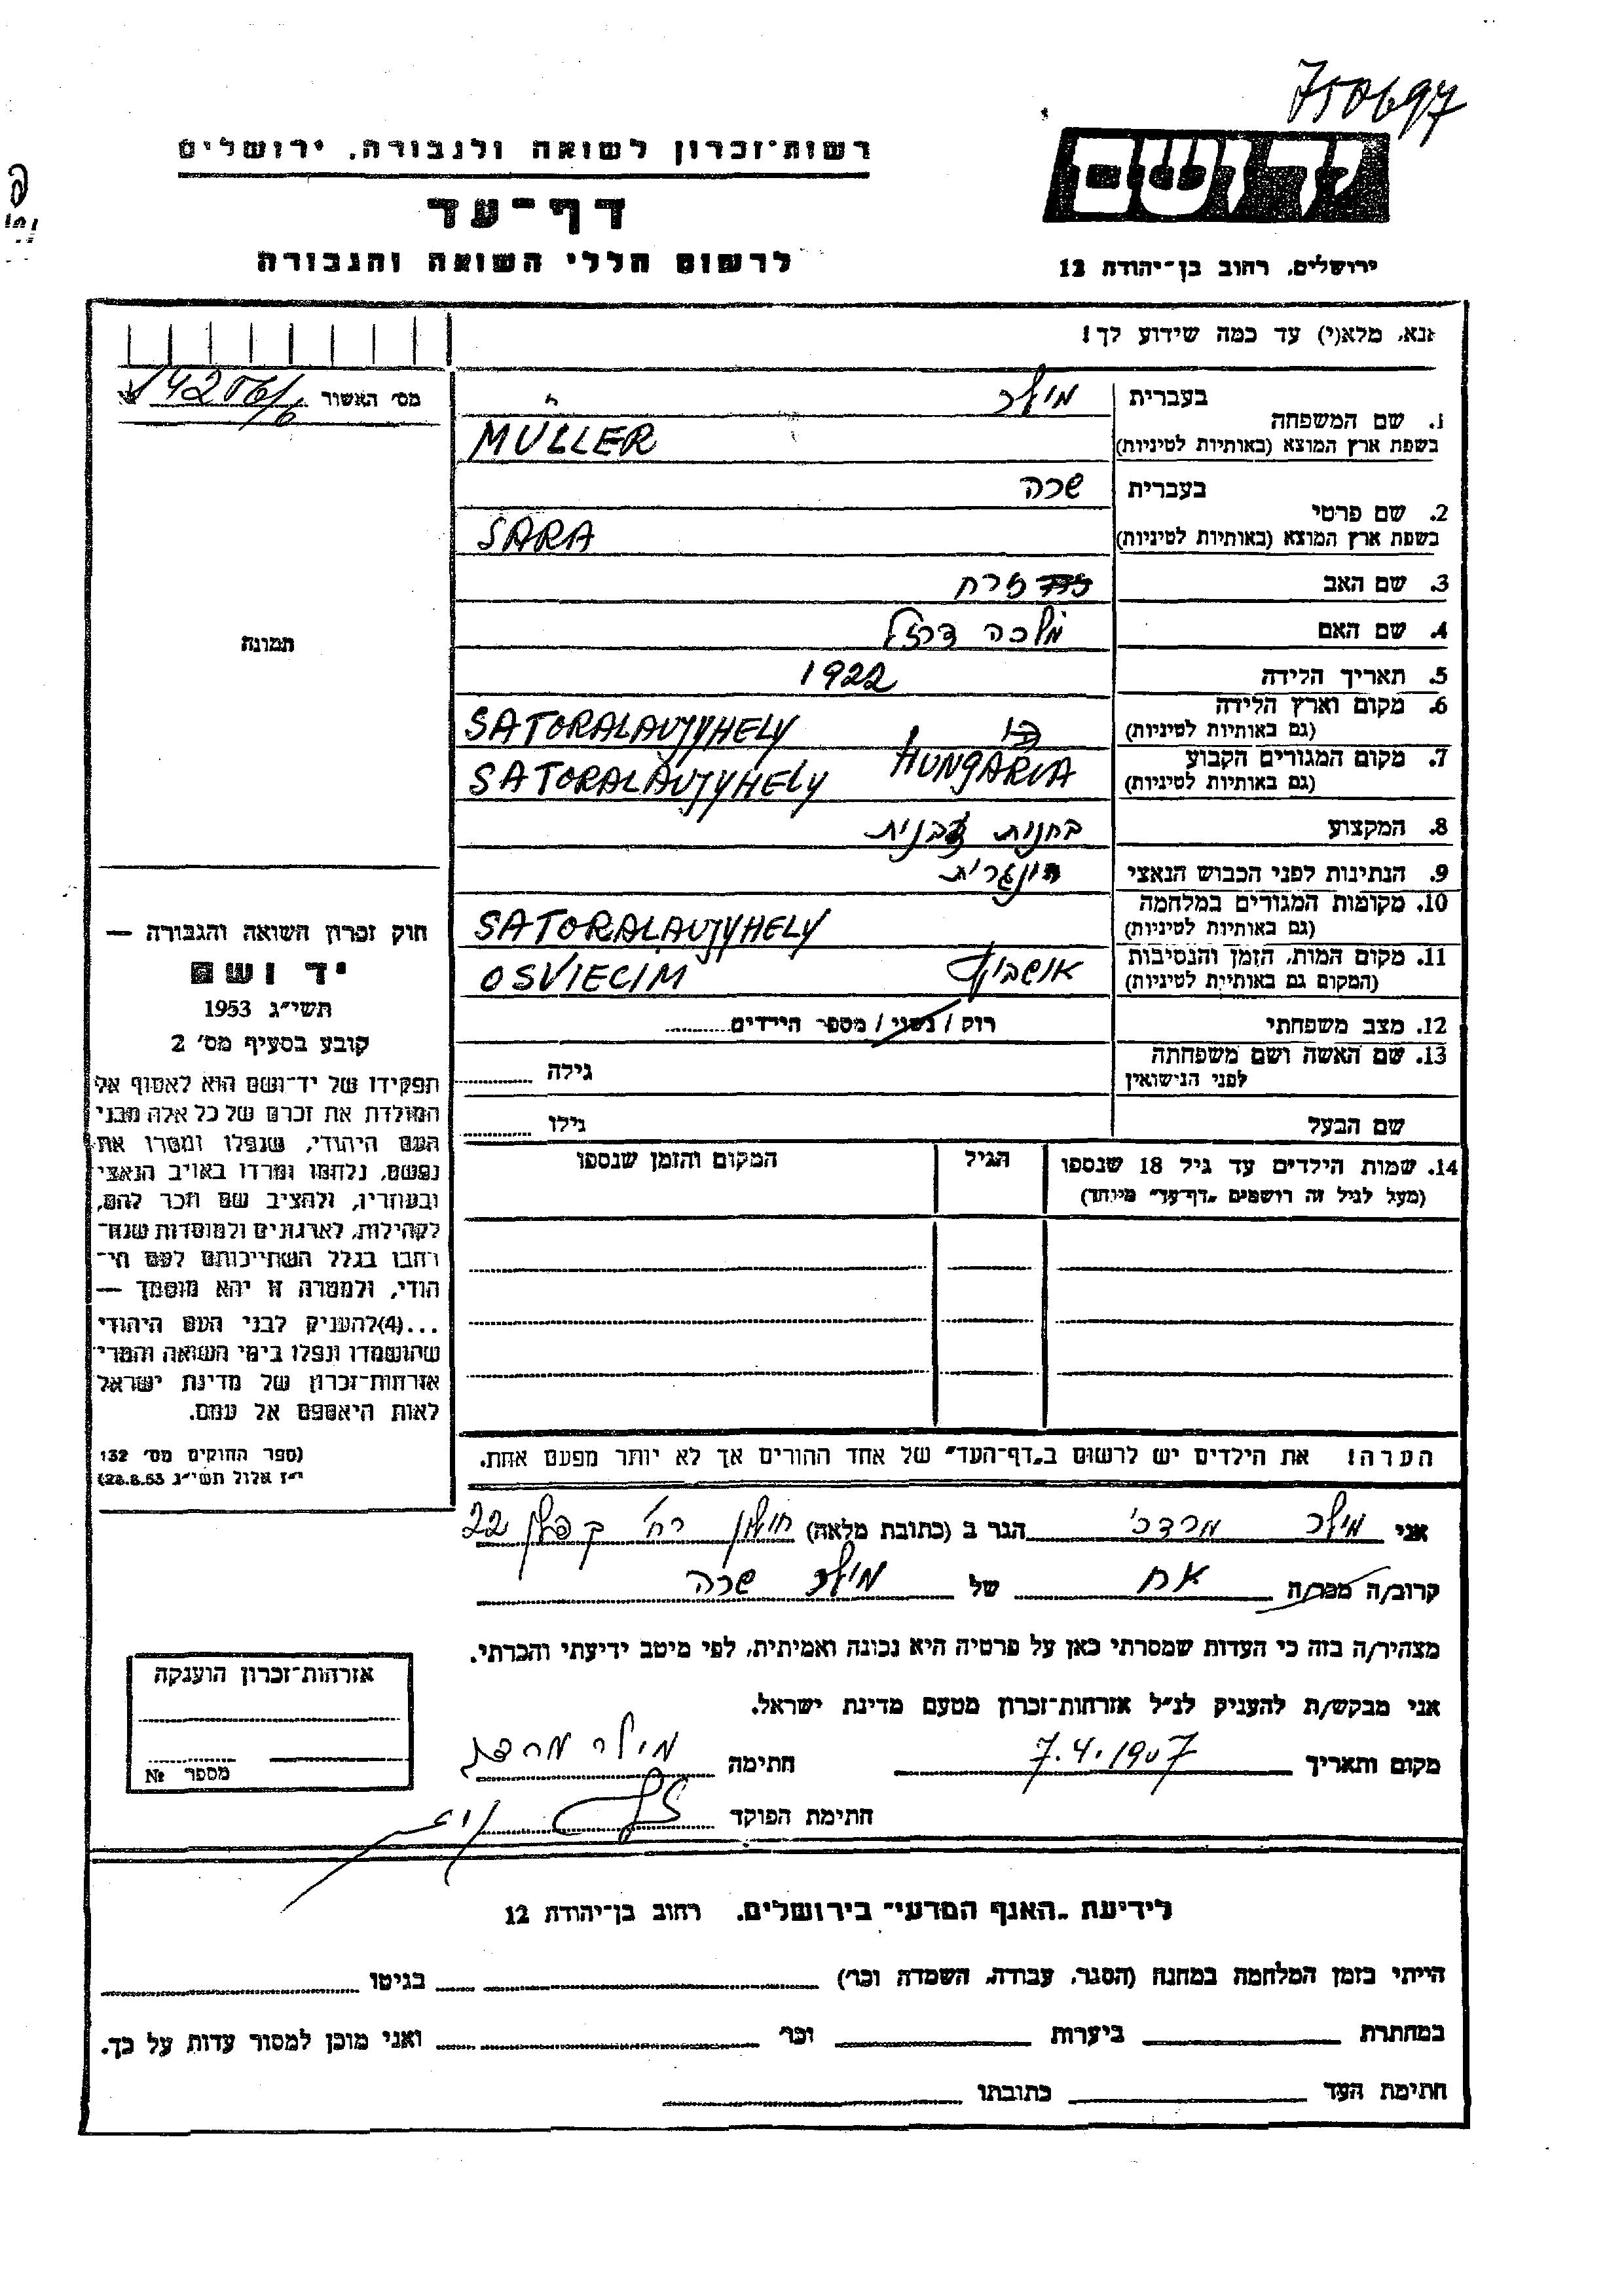 750697
רשות־זכרון לשואה ולגבורה, ירושלים
דף־עד
לרשום חללי השואה והגבורה
יד ושם
ירושלים, רחוב בן־יהודה 12
אנא, מלא(י) עד כמה שידוע לך!
מס׳ האשור
בעברית מילר
1. שם המשפחה
בשפת ארץ המוצא (באותיות לטיניות) MULLER
בעברית שרה
2. שם פרטי
בשפת ארץ המוצא (באותיות לטיניות) SARA
3. שם האב זרח
4. שם האם מלכה
5. תאריך הלידה 1922
6. מקום וארץ הלידה
(גם באותיות לטיניות) SATORALAUJYHELY
7. מקום המגורים הקבוע HUNGARIA
(גם באותיות לטיניות) SATORALAUJYHELY
8. המקצוע
9. הנתינות לפני הכבוש הנאצי הונגרית
10. מקומות המגורים במלחמה
(גם באותיות לטיניות) SATORALAUJYHELY
11. מקום המות, הזמן והנסיבות
(המקום גם באותיות לטיניות) אושביץ OSVIECIM
12. מצב משפחתי רוק / נשוי / מספר הילדים
13. שם האשה ושם משפחתה
לפני הנישואין גילה
שם הבעל גילו
14. שמות הילדים עד גיל 18 שנספו הגיל המקום והזמן שנספו
(מעל לגיל זה רושמים „דף־עד" מיוחד)
תמונה
חוק זכרון השואה והגבורה —
יד ושם
תשי״ג 1953
קובע בסעיף מס׳ 2
תפקידו של יד־ושם הוא לאסוף אל
המולדת את זכרם של כל אלה מבני
העם היהודי, שנפלו ומסרו את
נפשם, נלחמו ומרדו באויב הנאצי
ובעוזריו, ולהציב שם וזכר להם,
לקהילות, לארגונים ולמוסדות שנח־
רבו בגלל השתייכותם לעם הי־
הודי, ולמטרה זו יהא מוסמך —
...(4)להעניק לבני העם היהודי
שהושמדו ונפלו בימי השואה והמרי
אזרחות־זכרון של מדינת ישראל
לאות היאספם אל עמם.
(ספר החוקים מס׳ 132
י״ז אלול תשי״ג 28.8.53)
הערה! את הילדים יש לרשום ב„דף־העד" של אחד ההורים אך לא יותר מפעם אחת.
אני מילר מרדכי הגר ב (כתובת מלאה) חולון רח׳ קפלן 22
קרוב/ה מכר/ה אח של מילר שרה
מצהיר/ה בזה כי העדות שמסרתי כאן על פרטיה היא נכונה ואמיתית, לפי מיטב ידיעתי והכרתי.
אני מבקש/ת להעניק לנ״ל אזרחות־זכרון מטעם מדינת ישראל.
מקום ותאריך חתימה מילר מרדכי
חתימת הפוקד
אזרחות־זכרון הוענקה
מספר №
לידיעת „האגף המדעי" בירושלים, רחוב בן־יהודה 12
הייתי בזמן המלחמה במחנה (הסגר, עבודה, השמדה וכו׳) בגיטו
במחתרת ביערות וכו׳ ואני מוכן למסור עדות על כך.
חתימת העד כתובתו